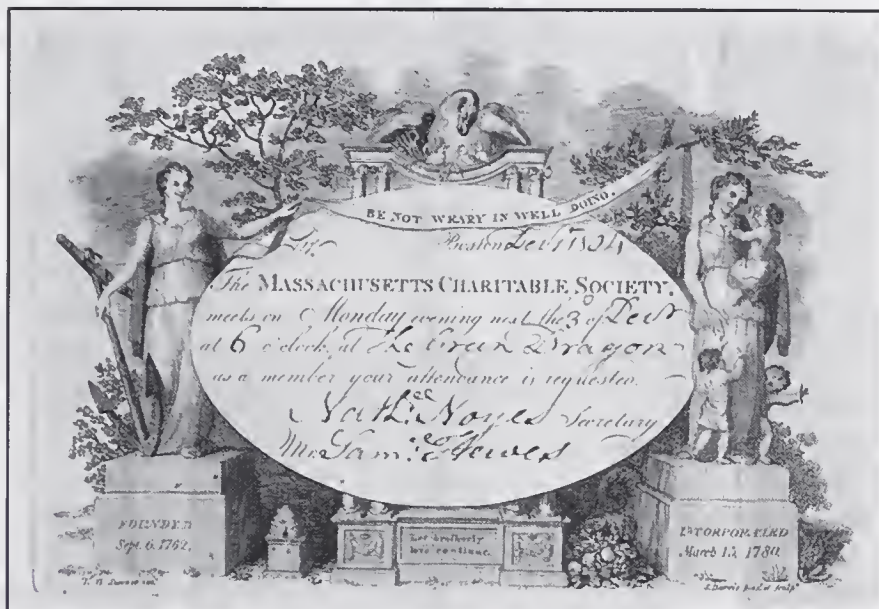 BE NOT WEARY IN WELL DOING.
Sir, Boston Decr 1 1804
The MASSACHUSETTS CHARITABLE SOCIETY,
meets on Monday evening next the 3d of Decr
at 6 o'clock, at The Green Dragon
as a member your attendance is requested.
Nathel Noyes Secretary
Mr Saml Hewes
FOUNDED
Sept. 6. 1762.
Let brotherly
love continue.
INCORPORATED
March 15, 1780.